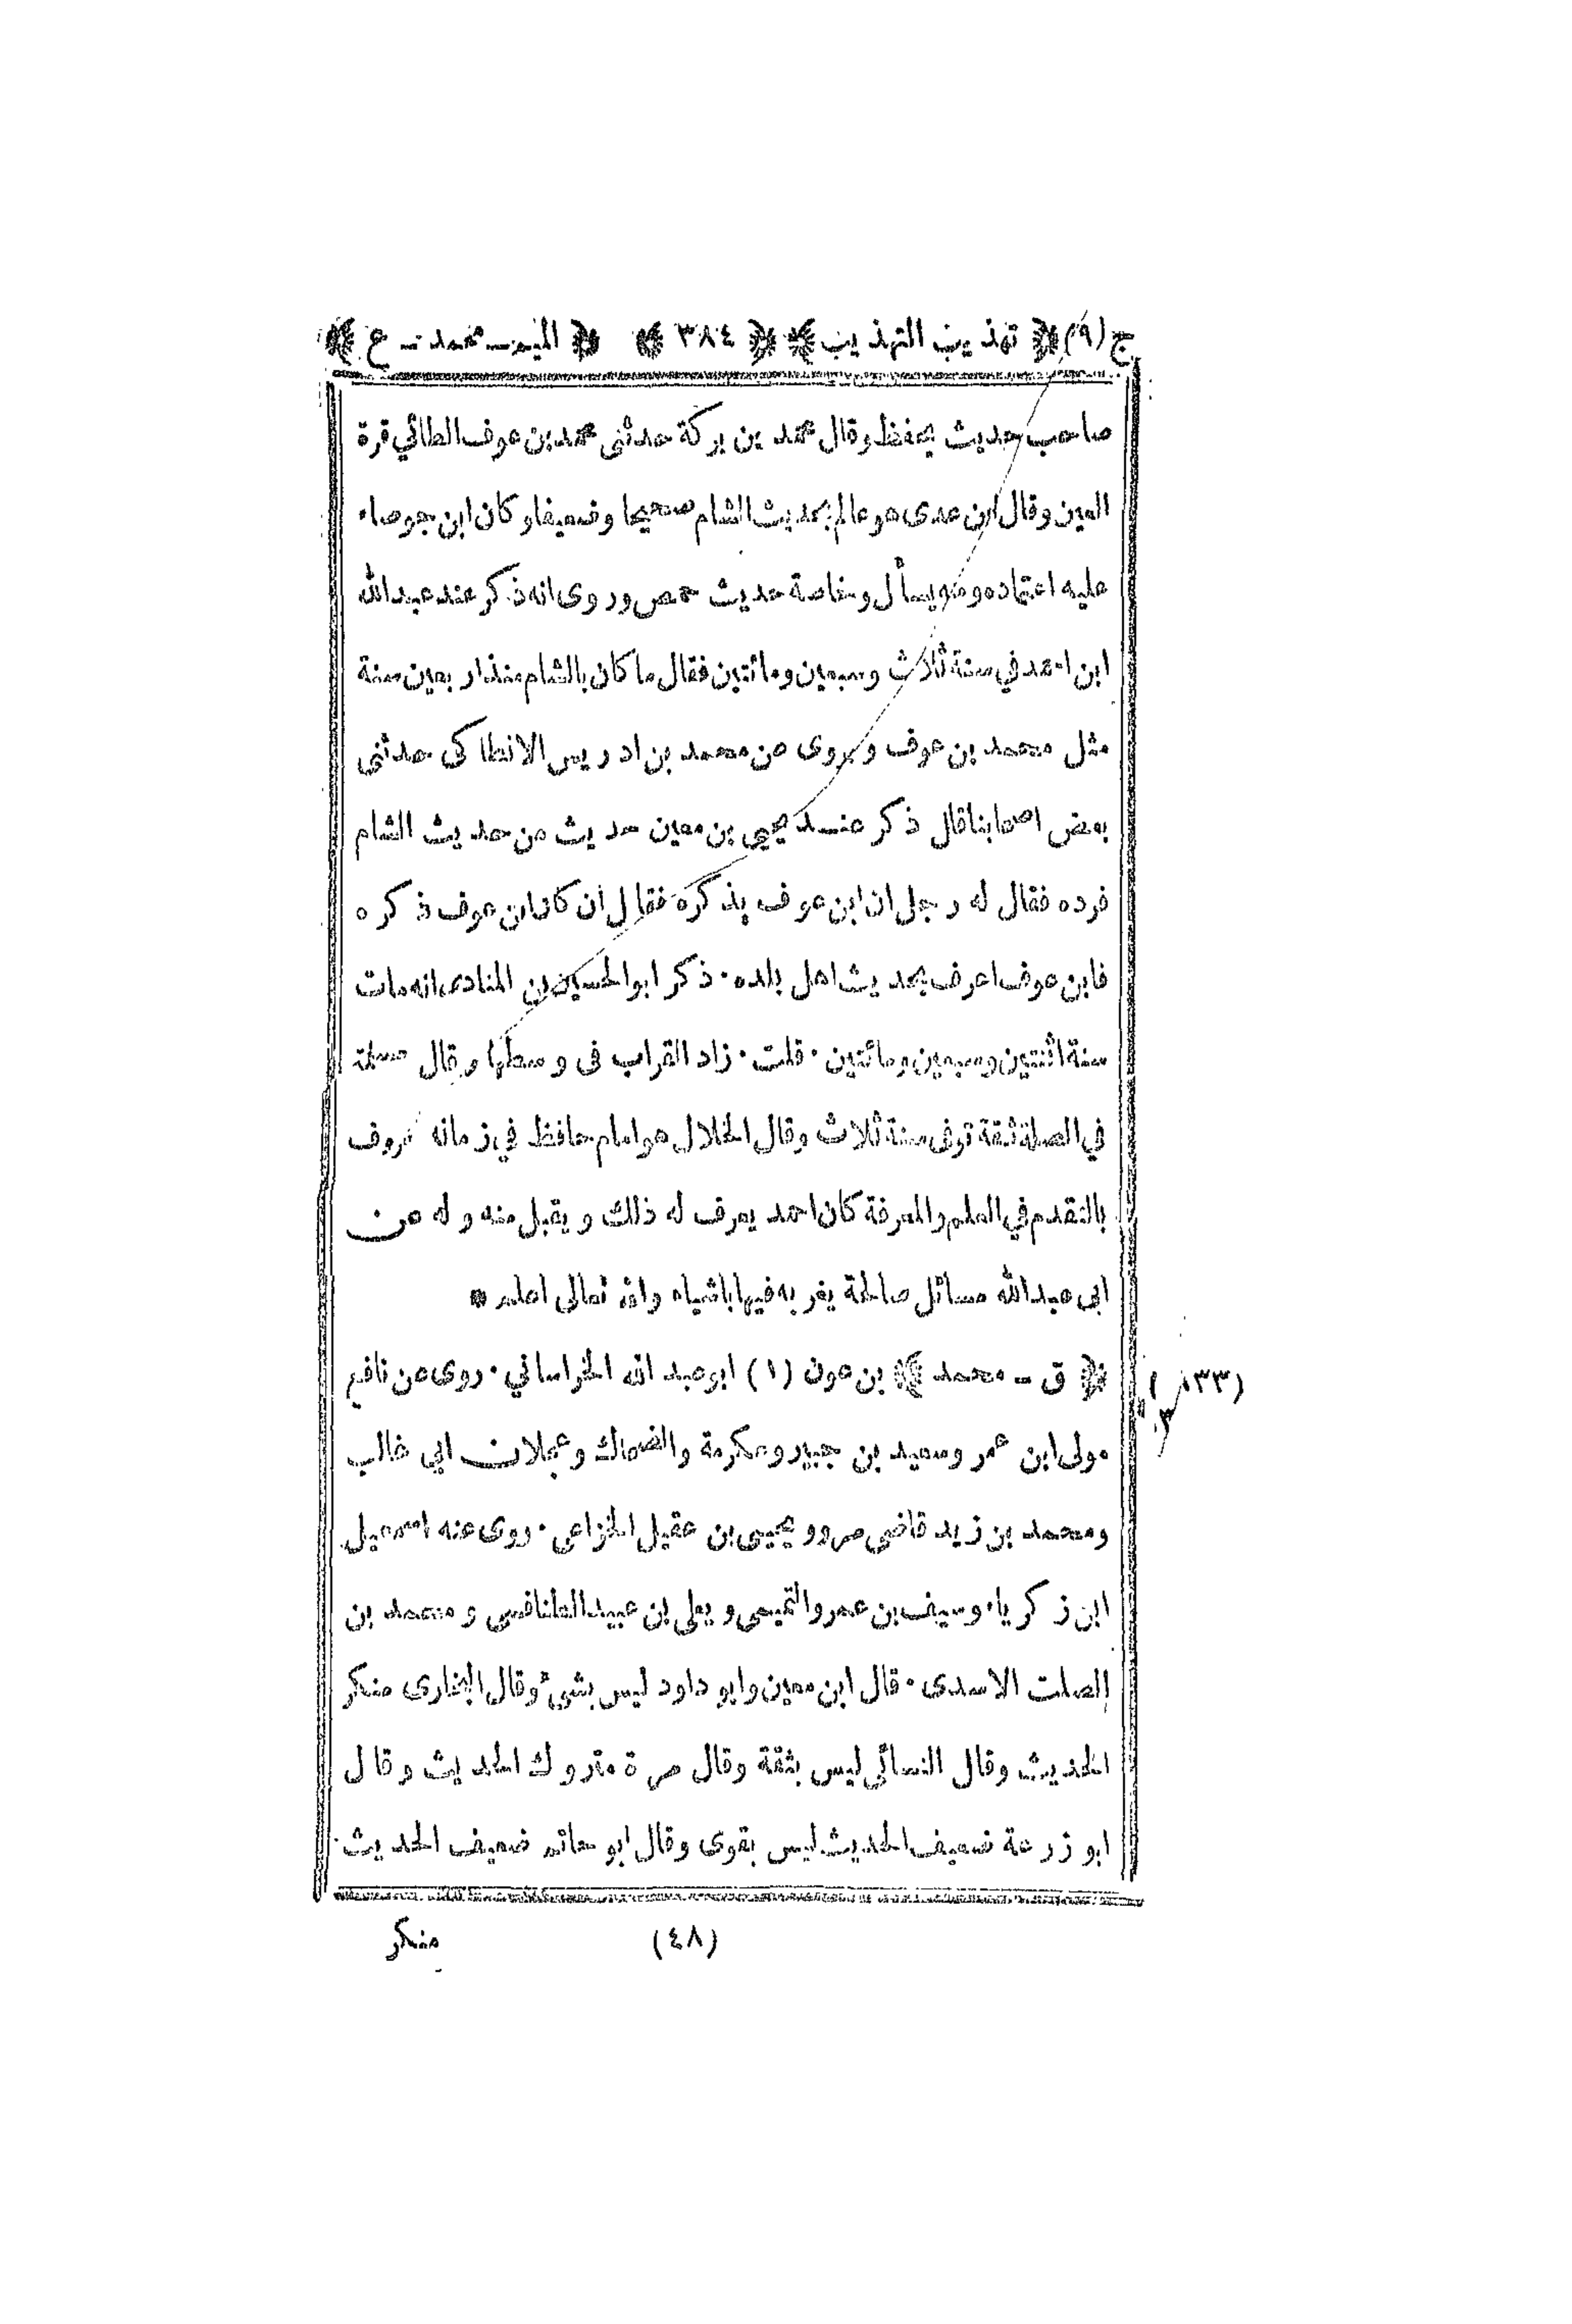 ج (٩) ﴿ تهذيب التهذيب ﴾ ﴿ ٣٨٤ ﴾ ﴿ الميم - محمد - ع ﴾
صاحب حديث يحفظ وقال محمد بن بركة حدثنى محمد بن عوف الطائي قرة
العين وقال ابن عدى هو عالم بحديث الشام صحيحا وضعيفا وكان ابن جوصاء
عليه اعتماده ومنه يسأل وخاصة حديث حمص وروى انه ذكر عند عبد الله
ابن احمد في سنة ثلاث وسبعين ومائتين فقال ما كان بالشام منذ اربعين سنة
مثل محمد بن عوف ويروى عن محمد بن ادريس الانطاكى حدثنى
بعض اصحابنا قال ذكر عند يحيى بن معين حديث من حديث الشام
فرده فقال له رجل ان ابن عوف يذكره فقال ان كان ابن عوف ذكره
فابن عوف اعرف بحديث اهل بلده · ذكر ابو الحسين بن المنادى انه مات
سنة اثنتين وسبعين ومائتين · قلت · زاد القراب فى وسطها وقال مسلمة
في الصلة ثقة توفى سنة ثلاث وقال الخلال هو امام حافظ في زمانه معروف
بالتقدم في العلم والمعرفة كان احمد يعرف له ذلك ويقبل منه وله عن
ابى عبد الله مسائل صالحة يغرب فيها باشياء والله تعالى اعلم *
﴿ ق - محمد ﴾ بن عون (١) ابو عبد الله الخراساني · روى عن نافع
مولى ابن عمر وسعيد بن جبير وعكرمة والضحاك وعجلان ابي غالب
ومحمد بن زيد قاضي مرو ويحيى بن عقيل الخزاعى · روى عنه اسمعيل
ابن زكرياء وسيف بن عمرو التميمى ويعلى بن عبيد الطنافسى ومحمد بن
الصلت الاسدى · قال ابن معين وابو داود ليس بشيء وقال البخارى منكر
الحديث وقال النسائى ليس بثقة وقال مرة متروك الحديث وقال
ابو زرعة ضعيف الحديث ليس بقوى وقال ابو حاتم ضعيف الحديث
(٤٨) منكر